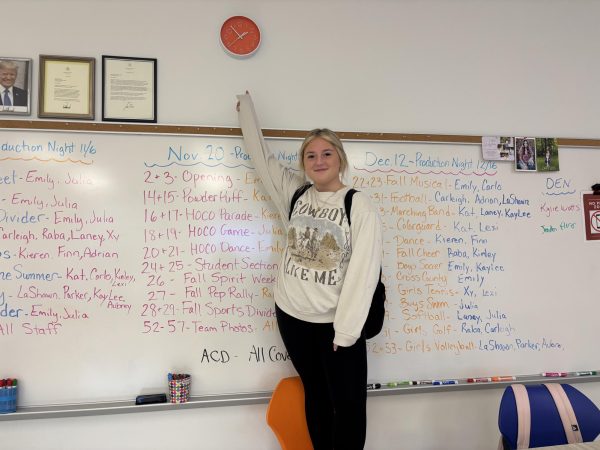 oduction Night 11/6
eet- Emily, Julia
Emily, Julia
Divider- Emily, Julia
Carleigh, Raba, Laney, Xy
s- Kieren, Finn, Adrian
me Summer- Kat, Carlo, Kinley, Lexi
y - LaShawn, Parker, KayLee, Aubrey
der- Emily, Julia
All Staff
Nov. 20 - Pro
Night
2+3- Opening- Em
14+15- Powder Puff- Ka
16+17- HOCO Parade- Kiere
18+19- HOCO Game- Julia
20+21- HOCO Dance- Emily
24+25- Student Section
26- Fall Spirit Week
27- Fall Pep Rally- Ra
28+29- Fall Sports Divide
52-57- Team Photos- A
ACD- All Cov
Dec. 12 - Production Night
22+23- Fall Musical- Emily, Carlo
Football- Carleigh, Adrian, LaShawn
Marching Band- Kat, Laney, KayLee
Colorguard- Kat, Lexi
Dance- Kieren, Finn
Fall Cheer- Raba, Kinley
Boys Soccer- Emily, KayLee
Cross Country- Emily
Girls Tennis- Xy, Lexi
Boys Swim- Julia
Softball- Laney, Julia
Girls Golf- Raba, Carleigh
Girls Volleyball- LaShawn, Parker,
DEN
Kylie
COWBOY
LIKE ME